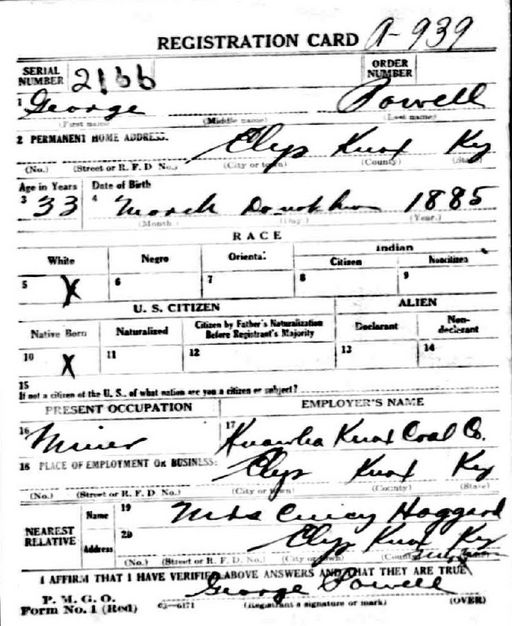 REGISTRATION CARD A-939
SERIAL NUMBER 2166 ORDER NUMBER
1 George Powell
(First name) (Middle name) (Last name)
2 PERMANENT HOME ADDRESS:
Elys Knox Ky
(No.) (Street or R. F. D No.) (City or town) (County) (State)
Age in Years Date of Birth
3 33 4 March Don't know 1885
(Month) (Day.) (Year.)
RACE
White Negro Oriental Indian
Citizen Noncitizen
5 X 6 7 8 9
U. S. CITIZEN ALIEN
Native Born Naturalized Citizen by Father's Naturalization Before Registrant's Majority Declarant Non-declarant
10 X 11 12 13 14
15
If not a citizen of the U. S., of what nation are you a citizen or subject?
PRESENT OCCUPATION EMPLOYER'S NAME
16 Miner 17 Knox Coal Co.
18 PLACE OF EMPLOYMENT OR BUSINESS:
Elys Knox Ky
(No.) (Street or R. F. D No.) (City or town) (County) (State)
NEAREST RELATIVE Name 19 Mrs Haggard
Address 20 Elys Knox Ky
(No.) (Street or R. F. D. No.) (City or town) (County)
I AFFIRM THAT I HAVE VERIFIED ABOVE ANSWERS AND THAT THEY ARE TRUE
P. M. G. O.
Form No. 1 (Red) 03—6171 George Powell
(Registrant's signature or mark) (OVER)